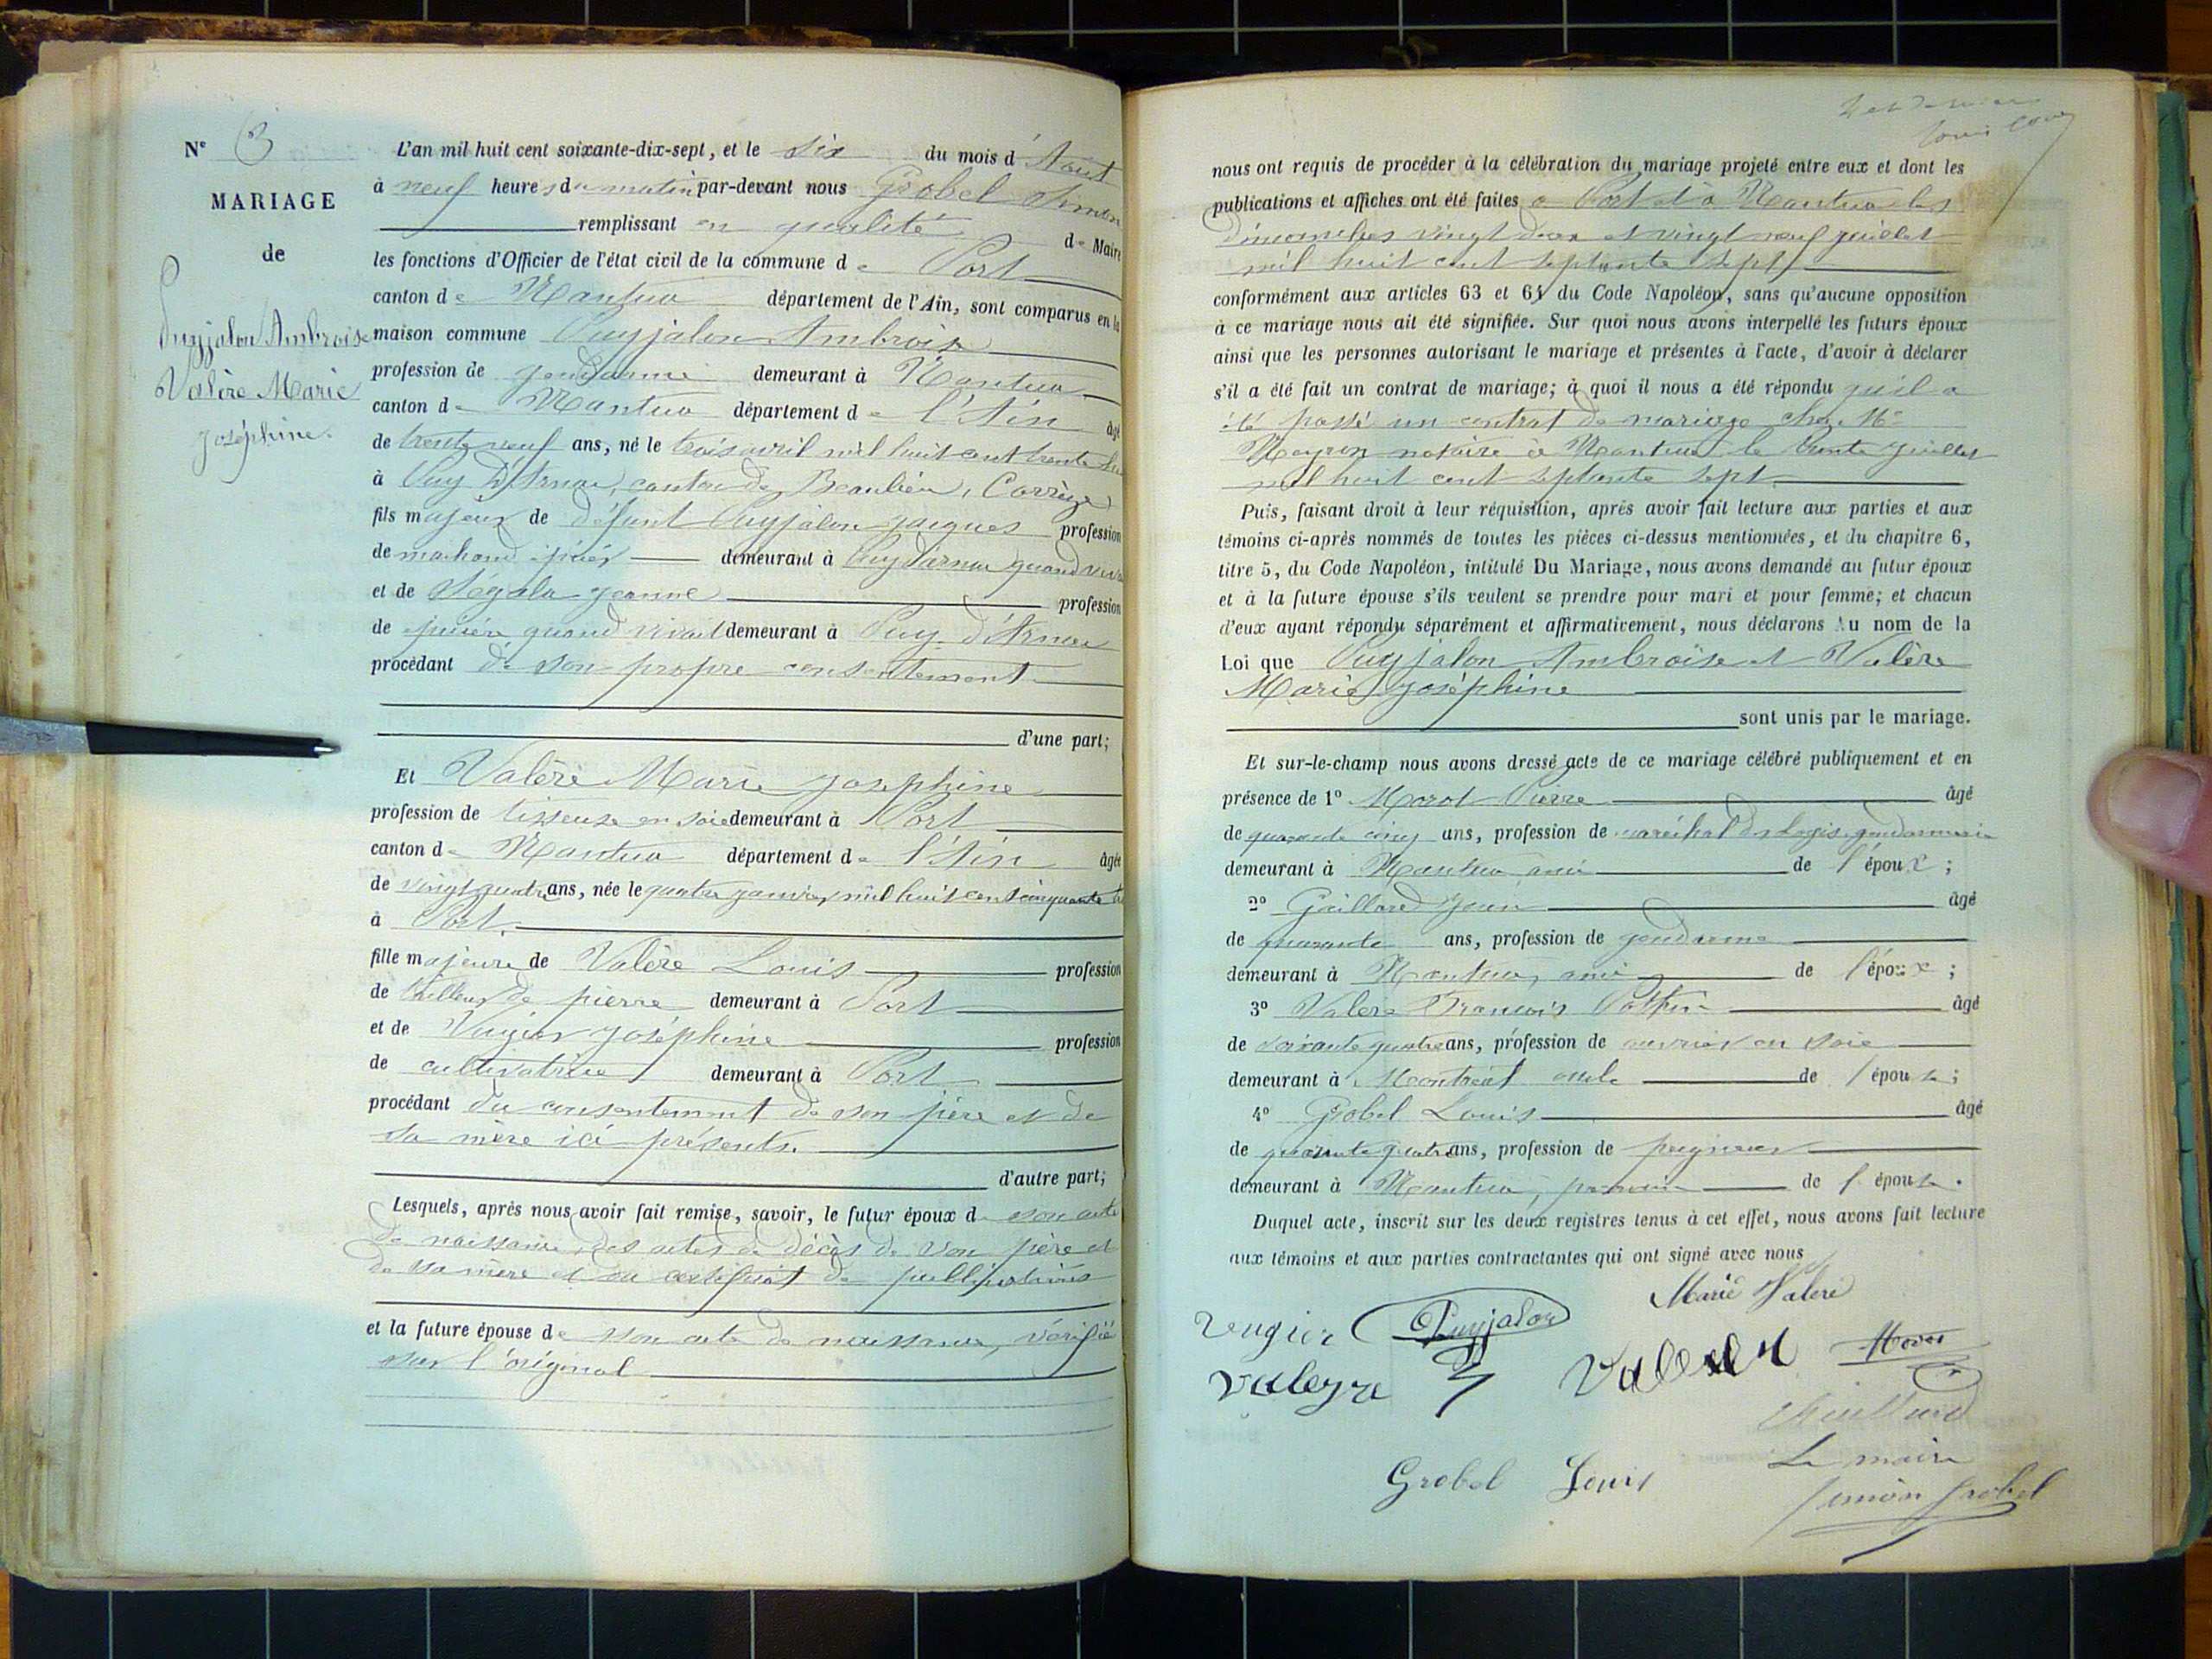 N° 3
MARIAGE
de
Puyjalon Ambroise
Valère Marie
Joséphine.
L'an mil huit cent soixante-dix-sept, et le six du mois d'Août
à neuf heures du matin par-devant nous Grobel Simon
remplissant en qualité de Maire
les fonctions d'Officier de l'état civil de la commune de Port
canton de Nantua département de l'Ain, sont comparus en la
maison commune Puyjalon Ambroise
profession de gendarme demeurant à Nantua
canton de Nantua département de l'Ain âgé
de trente neuf ans, né le trois avril mil huit cent trente huit
à Puy D'Arnac, canton de Beaulieu, (Corrèze)
fils majeur de défunt Puyjalon Jacques profession
de marchand épicier demeurant à Puy d'arnac quand vivait
et de Ségala Jeanne profession
de épicière quand vivait demeurant à Puy d'Arnac
procédant de son propre consentement
d'une part;
Et Valère Marie Joséphine
profession de tisseuse en soie demeurant à Port
canton de Nantua département de l'Ain âgée
de vingt quatre ans, née le quatre janvier mil huit cent cinquante
à Port.
fille majeure de Valère Louis profession
de tailleur de pierre demeurant à Port
et de Vugier Joséphine profession
de cultivatrice demeurant à Port
procédant du consentement de son père et de
sa mère ici présents.
d'autre part;
Lesquels, après nous avoir fait remise, savoir, le futur époux de son acte
de naissance, des actes de décès de son père et
de sa mère et du certificat de publications
et la future épouse de son acte de naissance, vérifié
sur l'original
nous ont requis de procéder à la célébration du mariage projeté entre eux et dont les
publications et affiches ont été faites à Port et à Nantua les
dimanches vingt deux et vingt neuf juillet
mil huit cent septante sept
conformément aux articles 63 et 64 du Code Napoléon, sans qu'aucune opposition
à ce mariage nous ait été signifiée. Sur quoi nous avons interpellé les futurs époux
ainsi que les personnes autorisant le mariage et présentes à l'acte, d'avoir à déclarer
s'il a été fait un contrat de mariage; à quoi il nous a été répondu qu'il a
été passé un contrat de mariage chez Me
notaire à Nantua le trente juillet
mil huit cent septante sept
Puis, faisant droit à leur réquisition, après avoir fait lecture aux parties et aux
témoins ci-après nommés de toutes les pièces ci-dessus mentionnées, et du chapitre 6,
titre 5, du Code Napoléon, intitulé Du Mariage, nous avons demandé au futur époux
et à la future épouse s'ils veulent se prendre pour mari et pour femme; et chacun
d'eux ayant répondu séparément et affirmativement, nous déclarons Au nom de la
Loi que Puyjalon Ambroise et Valère
Marie Joséphine
sont unis par le mariage.
Et sur-le-champ nous avons dressé acte de ce mariage célébré publiquement et en
présence de 1° Morot Pierre âgé
de quarante cinq ans, profession de maréchal des logis gendarmerie
demeurant à Nantua ami de l'époux;
2° Gaillard Jean âgé
de quarante ans, profession de gendarme
demeurant à Nantua, ami de l'époux;
3° Valère François âgé
de soixante quatre ans, profession de ouvrier en soie
demeurant à Montréal oncle de l'épouse;
4° Grobel Louis âgé
de quarante quatre ans, profession de peigneur
demeurant à Nantua, de l'épouse.
Duquel acte, inscrit sur les deux registres tenus à cet effet, nous avons fait lecture
aux témoins et aux parties contractantes qui ont signé avec nous
Marie Valère
Vugier Puyjalon
Grobel Louis
Le maire
Simon Grobel